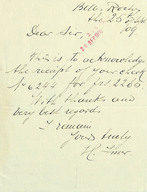 the 25
09
Dear Sir,
This is to acknowledge
the receipt of your check
No 6244 for frs 2265
With thanks and
very best regards
I remain
Yours truly